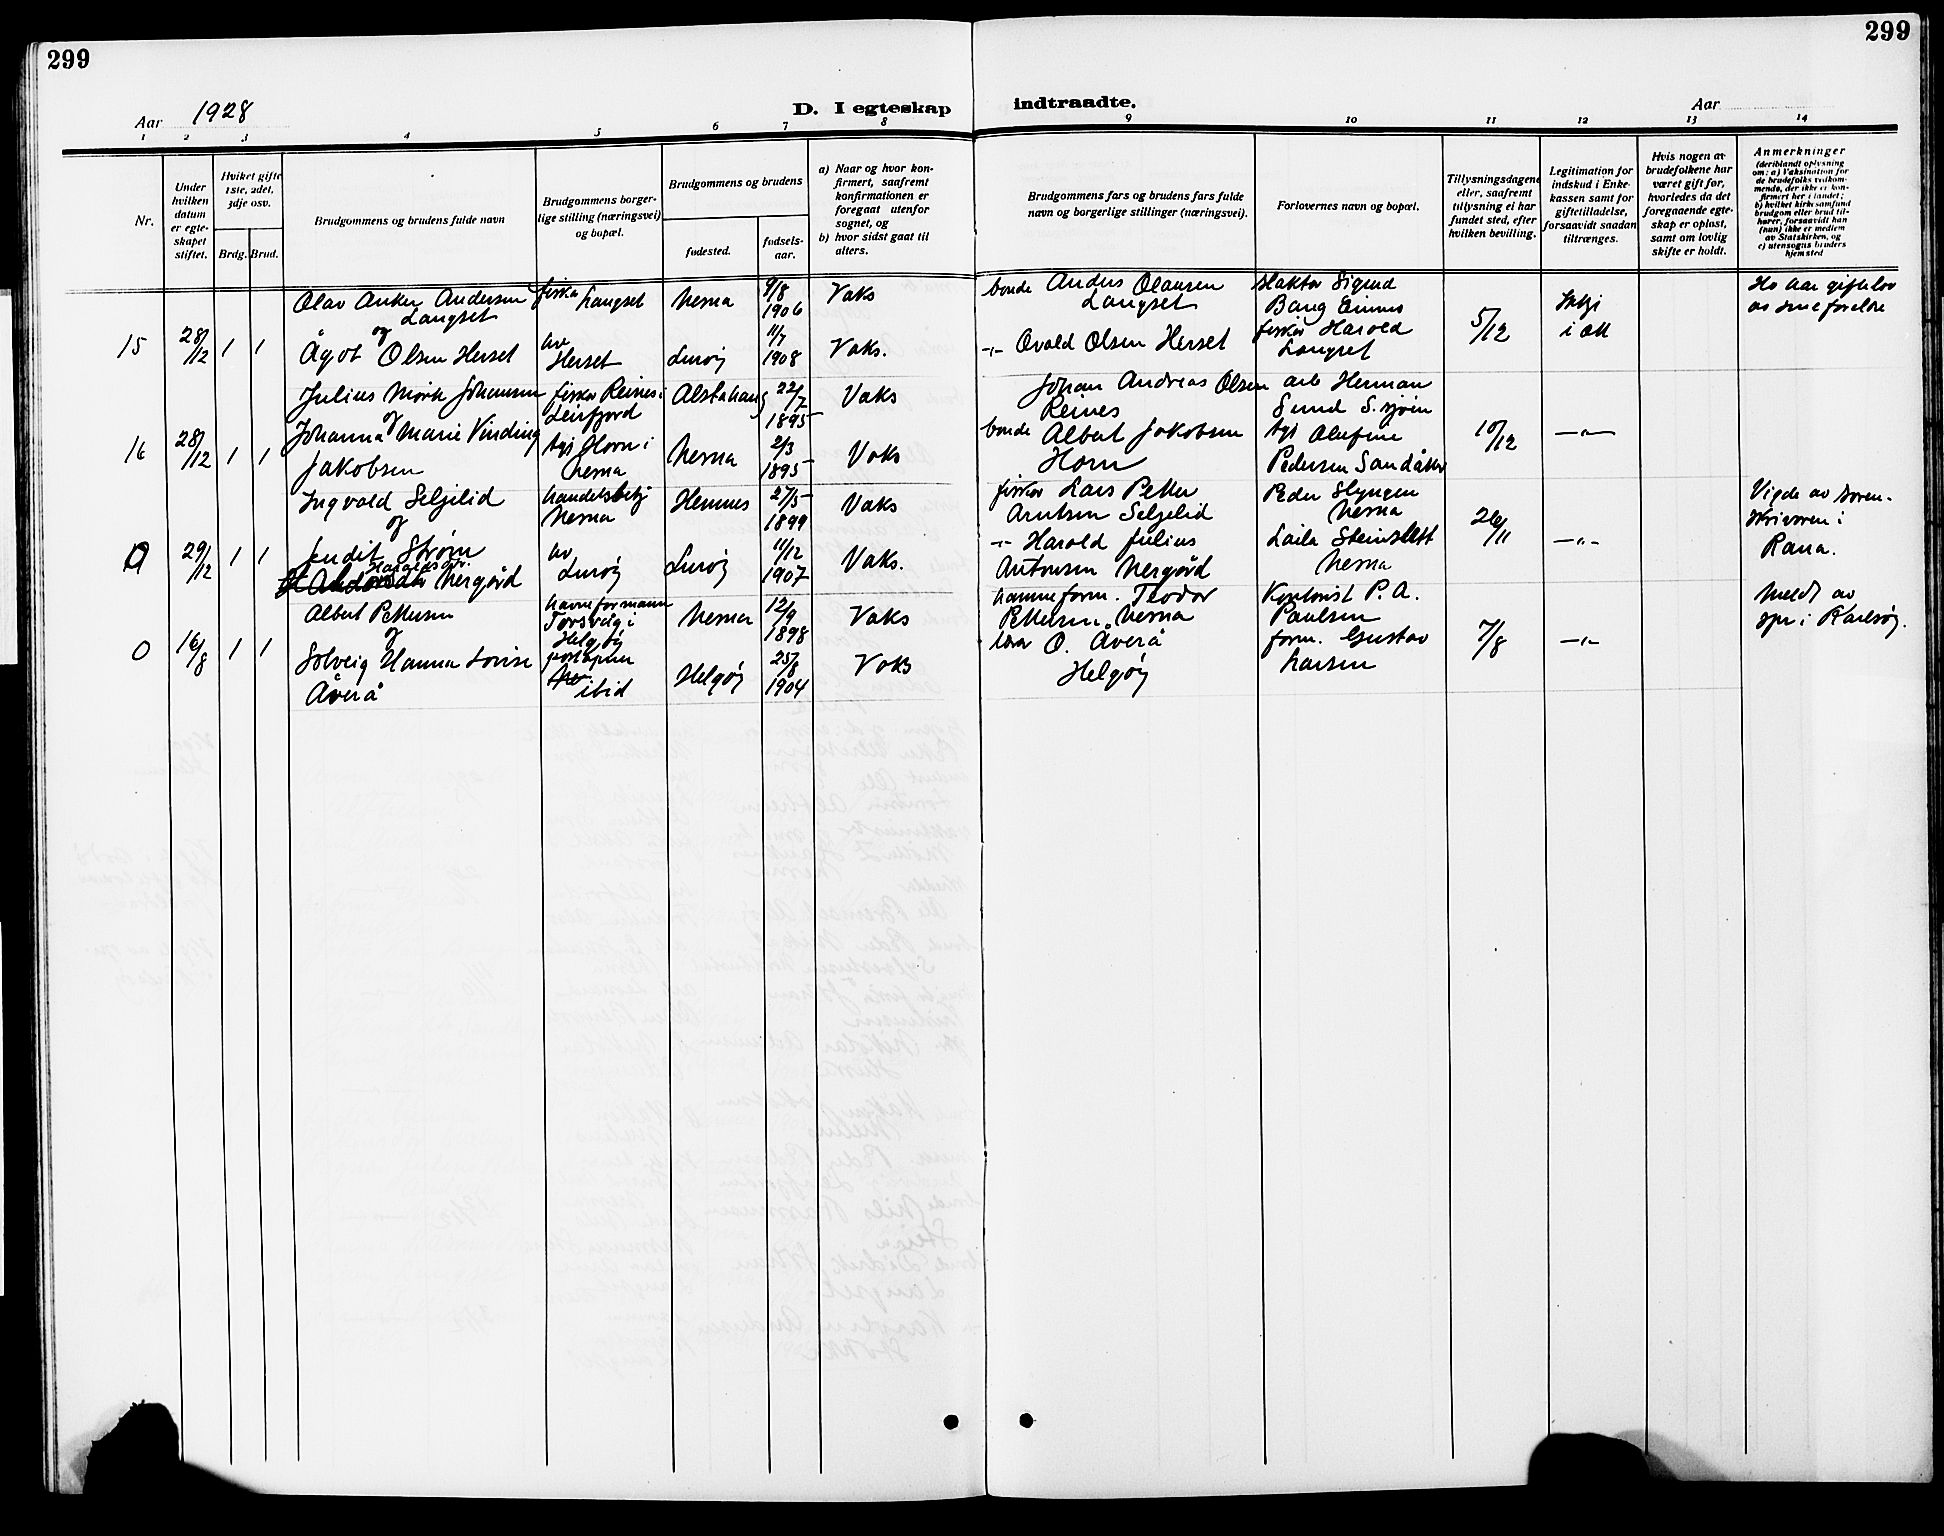 299
299
Aar 1928
D. I egteskap
indtraadte.
Aar
1 2 3 4 5 6 7 8 9 10 11 12 13 14
Nr.
Under hvilken datum er egteskapet stiftet.
Hvilket gifte 1ste, 2det, 3dje osv.
Brdg. Brud.
Brudgommens og brudens fulde navn
Brudgommens borgerlige stilling (næringsvei) og bopæl.
Brudgommens og brudens
fødested.
fødselsaar.
a) Naar og hvor konfirmert, saafremt konfirmationen er foregaat utenfor sognet, og
b) hvor sidst gaat til alters.
Brudgommens fars og brudens fars fulde navn og borgerlige stillinger (næringsvei).
Forlovernes navn og bopæl.
Tillysningsdagene eller, saafremt tillysning ei har fundet sted, efter hvilken bevilling.
Legitimation for indskud i Enkekassen samt for giftetilladelse, forsaavidt saadan tiltrænges.
Hvis nogen av brudefolkene har været gift før, hvorledes da det foregaaende egteskap er opløst, samt om lovlig skifte er holdt.
Anmerkninger
(deriblandt oplysning om: a) Vaksination for de brudefolks vedkommende, der ikke er konfirmert her i landet; b) hvilket kirkesamfund brudgom eller brud tilhører, forsaavidt han (hun) ikke er medlem av Statskirken, og c) utensogns bruders hjemsted
Olav Anker Andersen Langset fisker Langset Nesna 9/8 1906 Vaks bonde Anders Olausen Langset Sigurd Bang Einnes Ho har giftelov av sine foreldre
og
15 28/12 1 1 Ågot Olsen Herset av Herset Lurøy 11/7 1908 Vaks. -"- Ovald Olsen Herset fisker Harold Langset 5/12
Julius Mørk Johansen fisker Reines i Leirfjord Alstahaug 22/7 1895 Vaks Johan Andreas Olsen Reines arb Herman Sund S.sjøen
og
16 28/12 1 1 Johanna Marie Vinding Jakobsen Horn i Nesna Nesna 2/3 1895 Vaks bonde Albert Jakobsen Horn Olufine Pedersen Sandåker 10/12 -"-
Ingvald Seljelid handelsbetj Nesna Hemnes 27/5 1899 Vaks fisker Lars Petter Arntsen Seljelid Peder Slyngen Nesna Vigde av sorenskrivaren i Rana.
og
0 29/12 1 1 Jendit Strøm Haraldsdtr. Nergård av Lurøy Lurøy 11/12 1907 Vaks. -"- Harold Julius Antonsen Nergård Laila Steinslett Nesna 26/11 -"-
Albert Pettersen havneformann Torsvåg i Helgøy Nesna 12/9 1898 Vaks hamneform. Teodor Pettersen, Nesna Kontorist P. A. Paulsen Meldt av spr i Karlsøy.
og
0 16/8 1 1 Solveig Hanna Lovise Åverå ibid Helgøy 25/8 1904 Vaks O. Åverå Helgøy form. Gustav Larsen 7/8 -"-